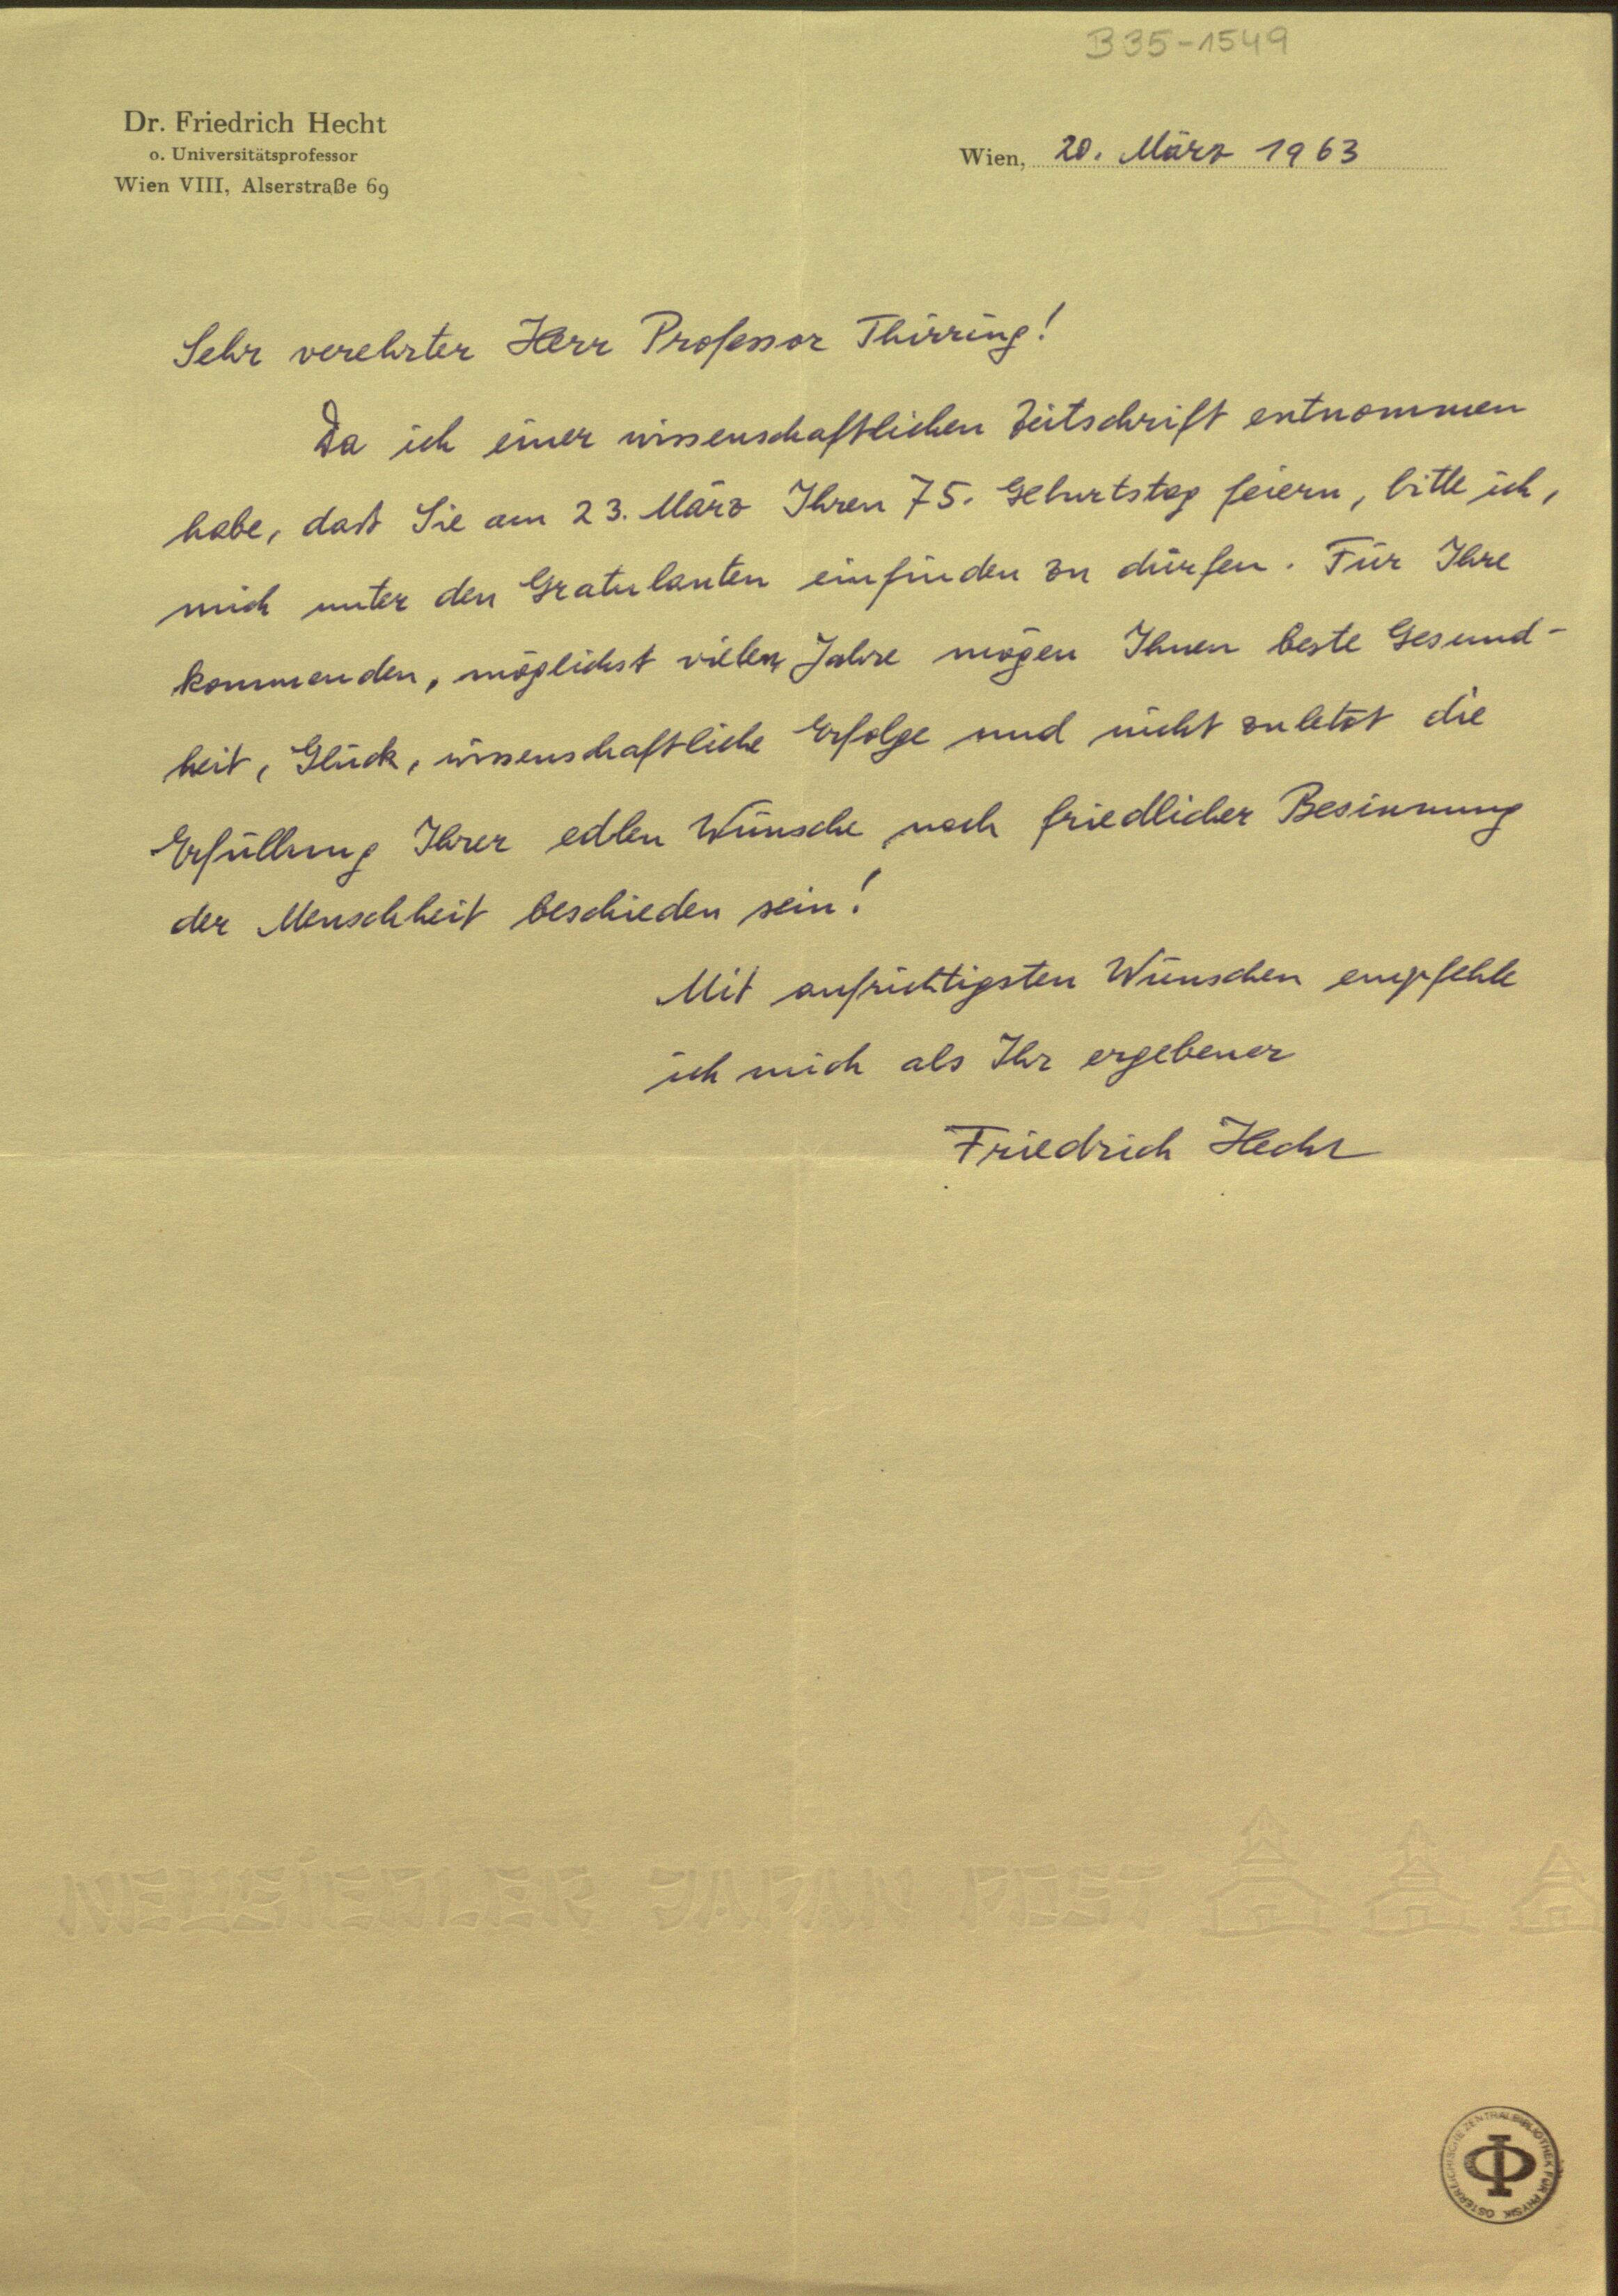 B35-1549
Dr. Friedrich Hecht
o. Universitätsprofessor
Wien VIII, Alserstraße 69
Wien, 20. März 1963
Sehr verehrter Herr Professor Thirring!
Da ich einer wissenschaftlichen Zeitschrift entnommen
habe, daß Sie am 23. März Ihren 75. Geburtstag feiern, bitte ich,
mich unter den Gratulanten einfinden zu dürfen. Für Ihre
kommenden, möglichst vielen Jahre mögen Ihnen beste Gesund-
heit, Glück, wissenschaftliche Erfolge und nicht zuletzt die
Erfüllung Ihrer edlen Wünsche nach friedlicher Besinnung
der Menschheit beschieden sein!
Mit aufrichtigsten Wünschen empfehle
ich mich als Ihr ergebener
Friedrich Hecht
NEUSIEDLER JAPAN POST
ÖSTERREICHISCHE ZENTRALBIBLIOTHEK FÜR PHYSIK